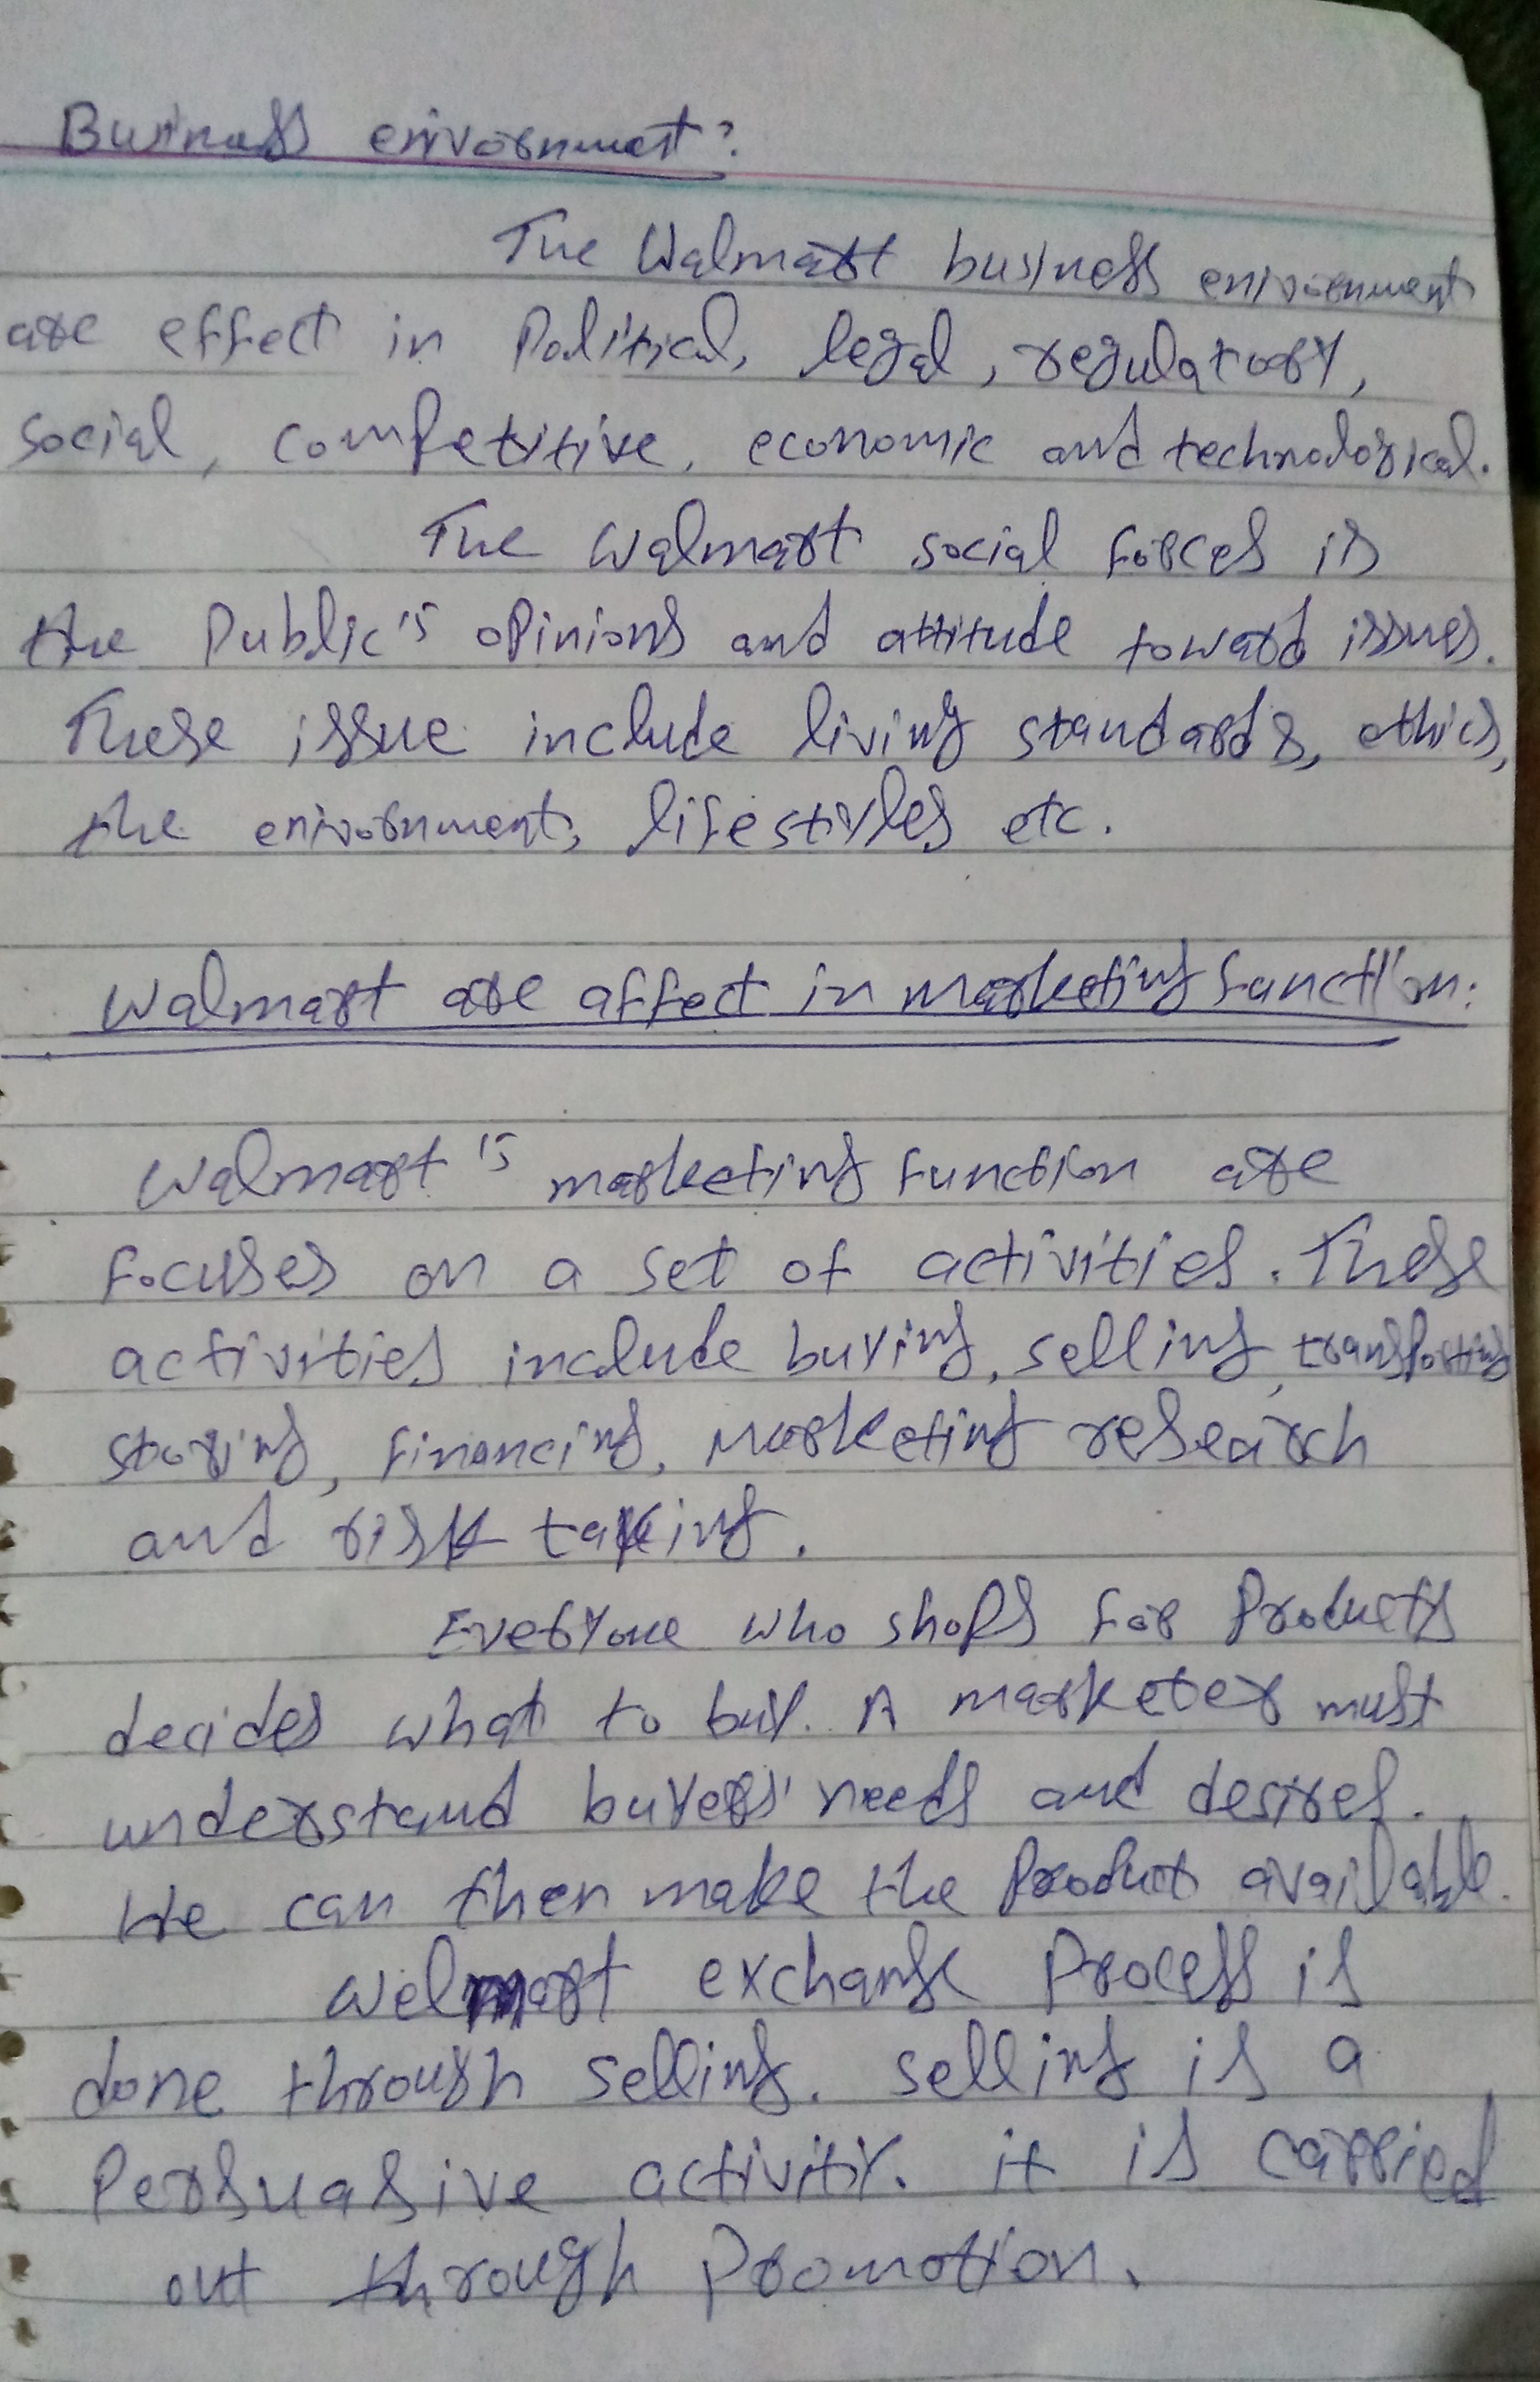 Business enivornment:
The Walmart business enivornment
are effect in Political, legal, regulatory,
social, competitive, economic and technological.
The Walmart social forces is
the Public's opinions and attitude toward issues.
These issue include living standards, ethics,
the enivornment, lifestyles etc.
Walmart are affect in marketing function:
Walmart's marketing function are
focuses on a set of activities. These
activities include buying, selling, transporting
storing, financing, marketing research
and risk taking.
Everyone who shops for Products
decides what to buy. A marketer must
understand buyers' needs and desires.
He can then make the Product available.
Welmart exchange Process is
done through selling. selling is a
Persuasive activity. it is carried
out through Promotion.